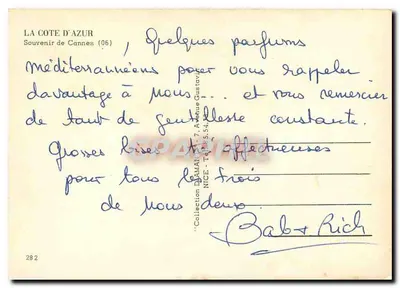 LA COTE D'AZUR
Souvenir de Cannes (06)
, Quelques parfums
méditerrannéens pour vous rappeler
davantage à nous... et vous remercier
de tant de gentillesse constante.
Grosses bises très affectueuses
pour tous les trois
de nous deux.
Bab + Rich
282